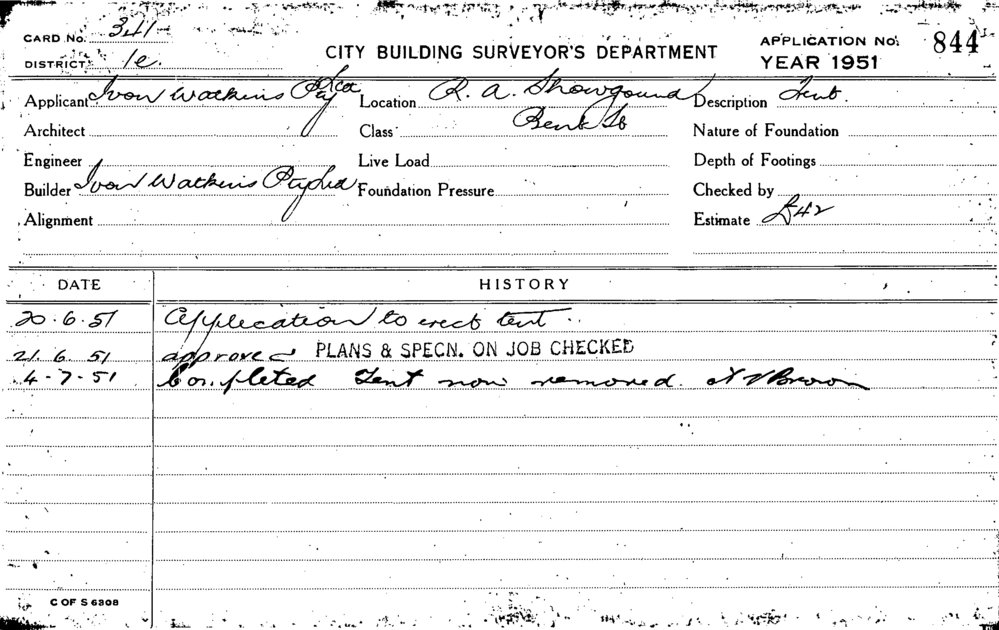 CARD No. 341
DISTRICT: 1e.
CITY BUILDING SURVEYOR'S DEPARTMENT
APPLICATION No. 844
YEAR 1951
Applicant Ivon Watkins Pty Ltd
Location R. A. Showground
Description Tent.
Architect
Class
Nature of Foundation
Engineer
Live Load
Depth of Footings
Builder Ivon Watkins Pty Ltd
Foundation Pressure
Checked by
Alignment
Estimate £42
DATE HISTORY
20.6.51 Application to erect tent.
21.6.51 approved PLANS & SPECN. ON JOB CHECKED
4-7-51 Completed Tent now removed. Brown
C OF S 6308